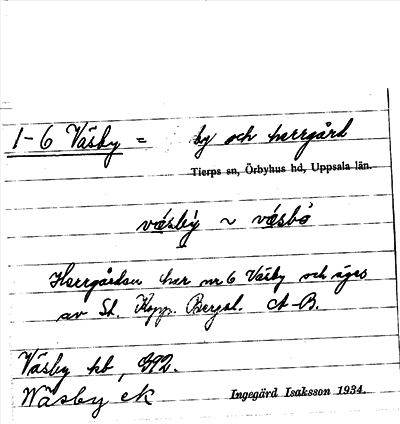 1-6 Väsby = by och herrgård
Tierps sn, Örbyhus hd, Uppsala län.
væsby ~ væsbo
Herrgården har nr 6 Väsby och äges
av St. Kopp. Bergsl. A-B.
Väsby hb, G92.
Wäsby ek
Ingegärd Isaksson 1934.